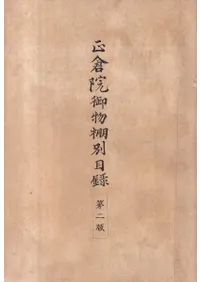 正倉院御物棚別目録
第二版